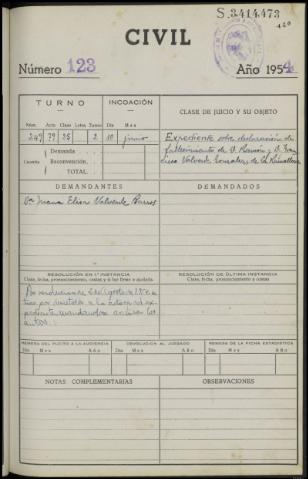 S.3414.473
CIVIL
Número 123 Año 1954
TURNO INCOACIÓN CLASE DE JUICIO Y SU OBJETO
Núm. Acto Clase Letra Turno Día Mes
249 29 25 2 10 junio
Expediente sobre declaración de
fallecimiento de D. Ramón y D. Fran
cisco Valverde González de la
Cuantía Demanda
Reconvención
TOTAL
DEMANDANTES DEMANDADOS
Dª Juana Elisa Valverde
RESOLUCIÓN EN 1.ª INSTANCIA
Clase, fecha, pronunciamiento, costas y si fue firme o apelada
RESOLUCIÓN DE ÚLTIMA INSTANCIA
Clase, fecha, pronunciamiento y costas
por a la actora del ex-
pediente archivar los
autos
REMESA DEL PLEITO A LA AUDIENCIA DEVOLUCIÓN AL JUZGADO REMISIÓN DE LA FICHA ESTADÍSTICA
Día Mes Año Día Mes Año Día Mes Año
NOTAS COMPLEMENTARIAS OBSERVACIONES